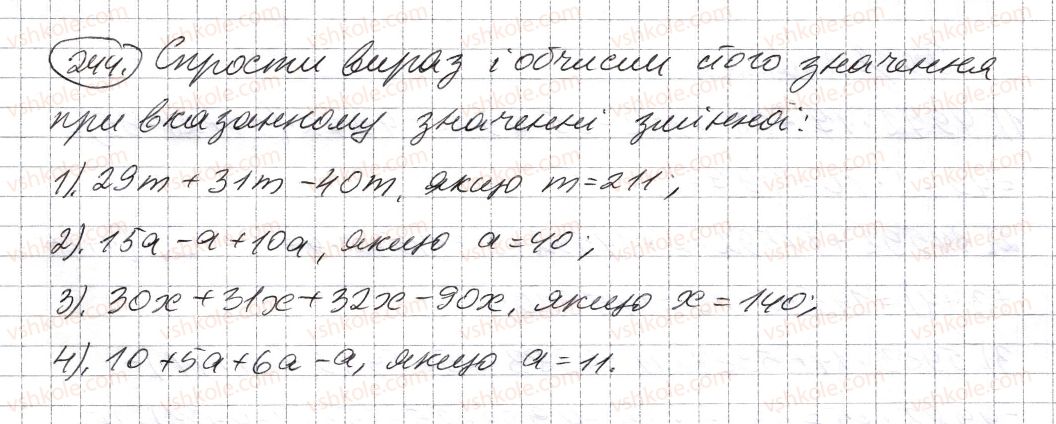 244. Спрости вираз і обчисли його значення
при вказанному значенні змінної:
1). 29m + 31m - 40m, якщо m = 211;
2). 15a - a + 10a, якщо a = 40;
3). 30x + 31x + 32x - 90x, якщо x = 140;
4). 10 + 5a + 6a - a, якщо a = 11.